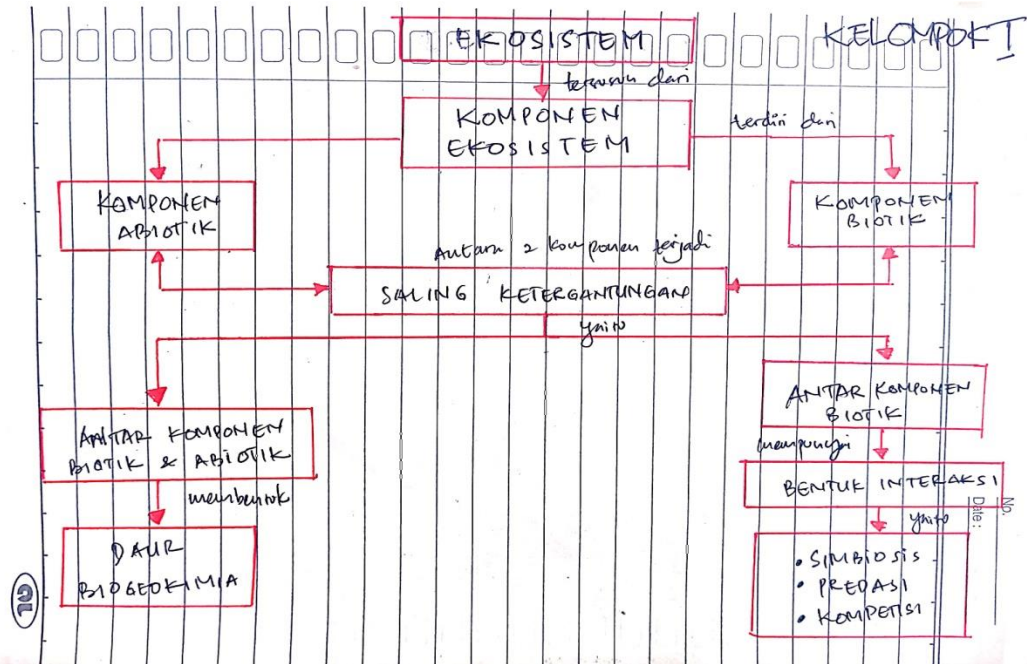 KELOMPOK I
EKOSISTEM
tersusun dari
KOMPONEN
EKOSISTEM
terdiri dari
KOMPONEN
ABIOTIK
KOMPONEN
BIOTIK
Antara 2 komponen terjadi
SALING KETERGANTUNGAN
yaitu
ANTAR KOMPONEN
BIOTIK & ABIOTIK
membentuk
DAUR
BIOGEOKIMIA
ANTAR KOMPONEN
BIOTIK
mempunyai
BENTUK INTERAKSI
yaitu
• SIMBIOSIS
• PREDASI
• KOMPETISI
No.
Date: